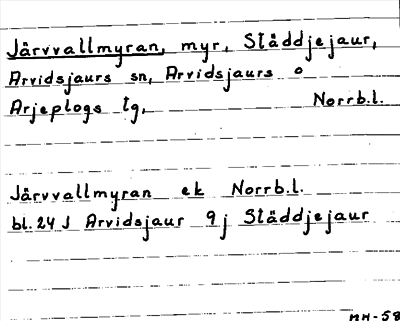 Järvvallmyran, myr, Ståddjejaur,
Arvidsjaurs sn, Arvidsjaurs o
Arjeplogs tg, Norrb.l.
Järvvallmyran ek Norrb.l.
bl. 24 J Arvidsjaur 9j Ståddjejaur
MH-58